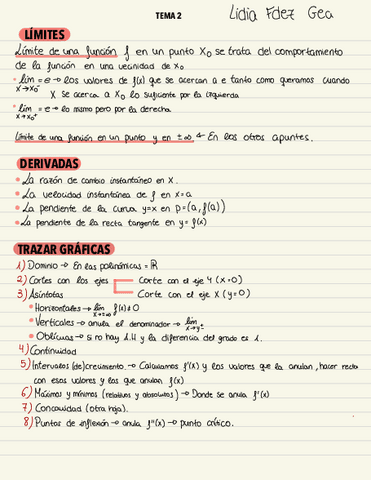 TEMA 2
Lidia Fdez Gea
LÍMITES
Límite de una función f en un punto X₀ se trata del comportamiento
de la función en una vecindad de x₀
• lim x→x₀⁻ = e → Los valores de f(x) que se acercan a e tanto como queramos cuando
X se acerca a X₀ lo suficiente por la izquierda
• lim x→x₀⁺ = e → lo mismo pero por la derecha.
Límite de una función en un punto y en ±∞ ← En los otros apuntes.
DERIVADAS
• La razón de cambio instantáneo en X.
• La velocidad instantánea de f en x=a
• La pendiente de la curva y=x en P=(a, f(a))
• La pendiente de la recta tangente en y=f(x)
TRAZAR GRÁFICAS
1) Dominio → En las polinómicas = ℝ
2) Cortes con los ejes Corte con el eje Y (x=0)
3) Asíntotas Corte con el eje X (y=0)
• Horizontales → lim x→±∞ f(x) ≠ 0
• Verticales → anula el denominador → lim
• Oblicuas → si no hay A.H y la diferencia del grado es 1.
4) Continuidad
5) Intervalos (de)crecimiento → Calculamos f'(x) y los valores que la anulan, hacer recta
con esos valores y los que anulan f(x)
6) Máximos y mínimos (relativos y absolutos) → Donde se anula f'(x)
7) Concavidad (otra hoja).
8) Puntos de inflexión → anula f''(x) → punto crítico.